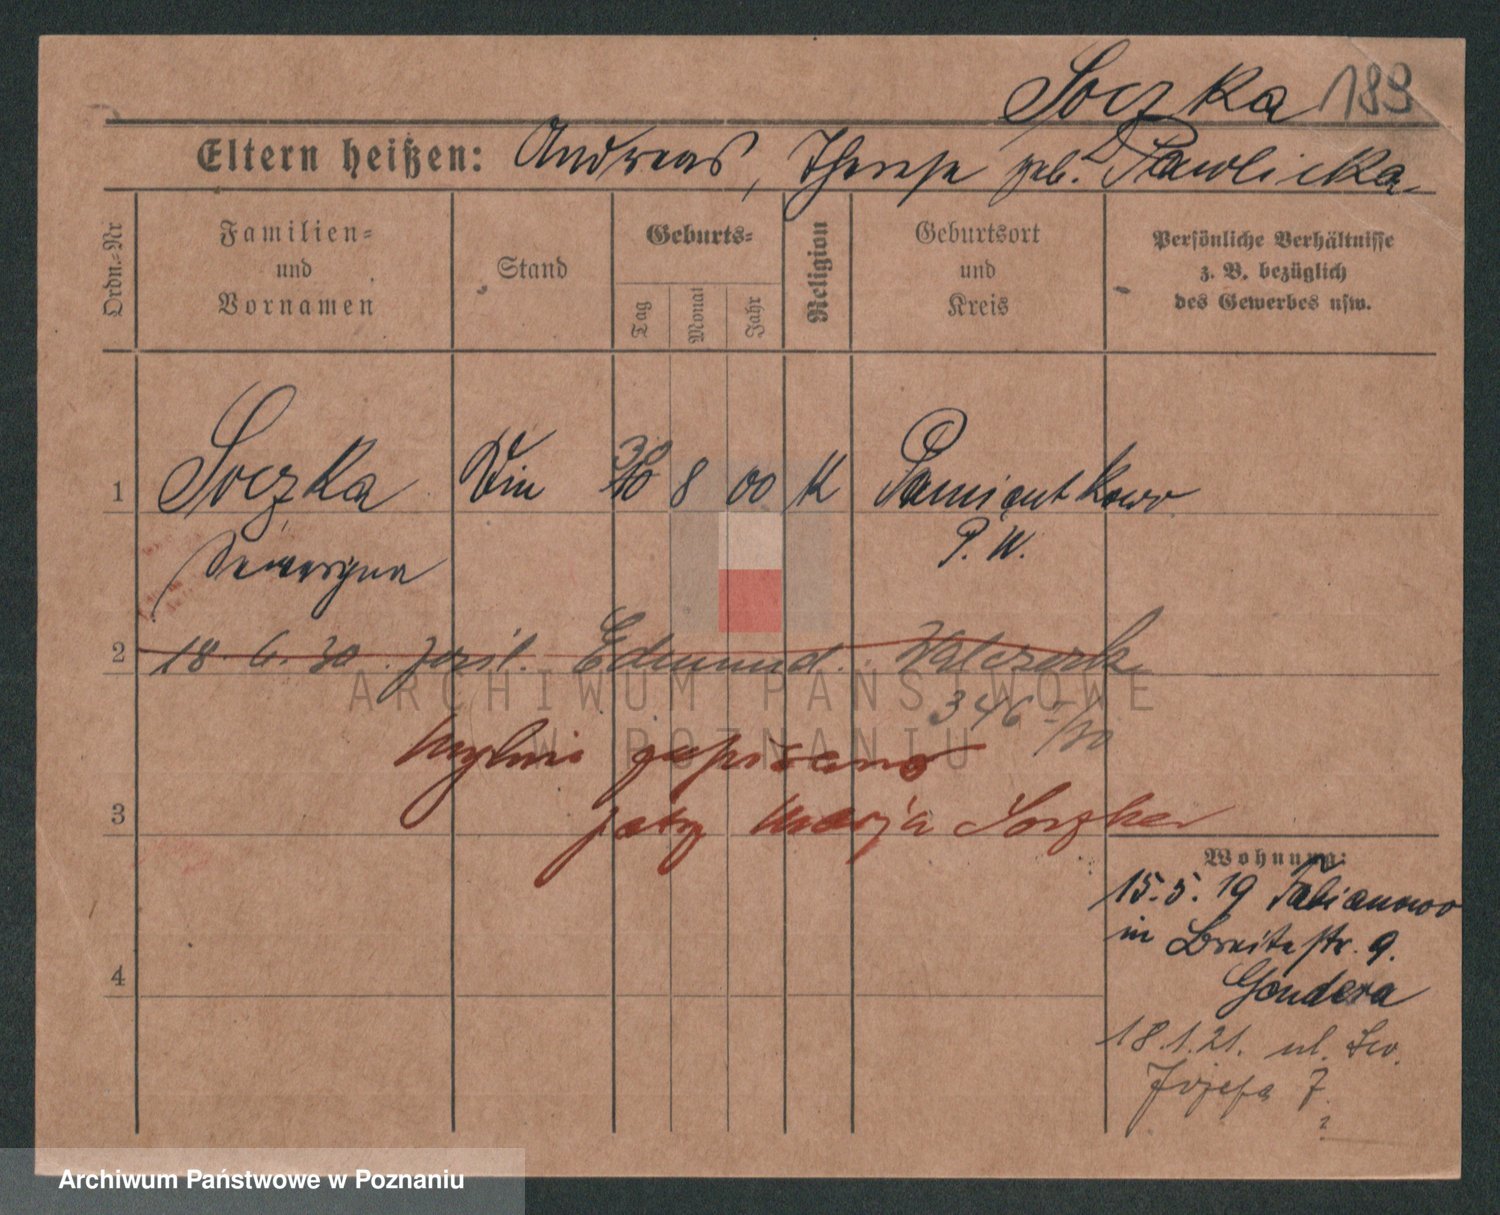 Soczka 189
Eltern heißen: Andreas, Therese geb. Pawlicka
Ordn.-Nr
Familien-
und
Vornamen
Stand
Geburts-
Tag
Monat
Jahr
Religion
Geburtsort
und
Kreis
Persönliche Verhältnisse
z. B. bezüglich
des Gewerbes usw.
30
1 Soczka 8 00 K Pamiątkowo
P. W.
2 18. 6. 30. Edmund. Walczak
346
mylnie zapisano
3 patrz Marja Soczka
Wohnung:
15.5.19 Fabianowo
in Breitestr. 9.
4 Gondera
18.1.21. ul. Św.
Józefa 7.
ARCHIWUM PAŃSTWOWE
W POZNANIU
Archiwum Państwowe w Poznaniu